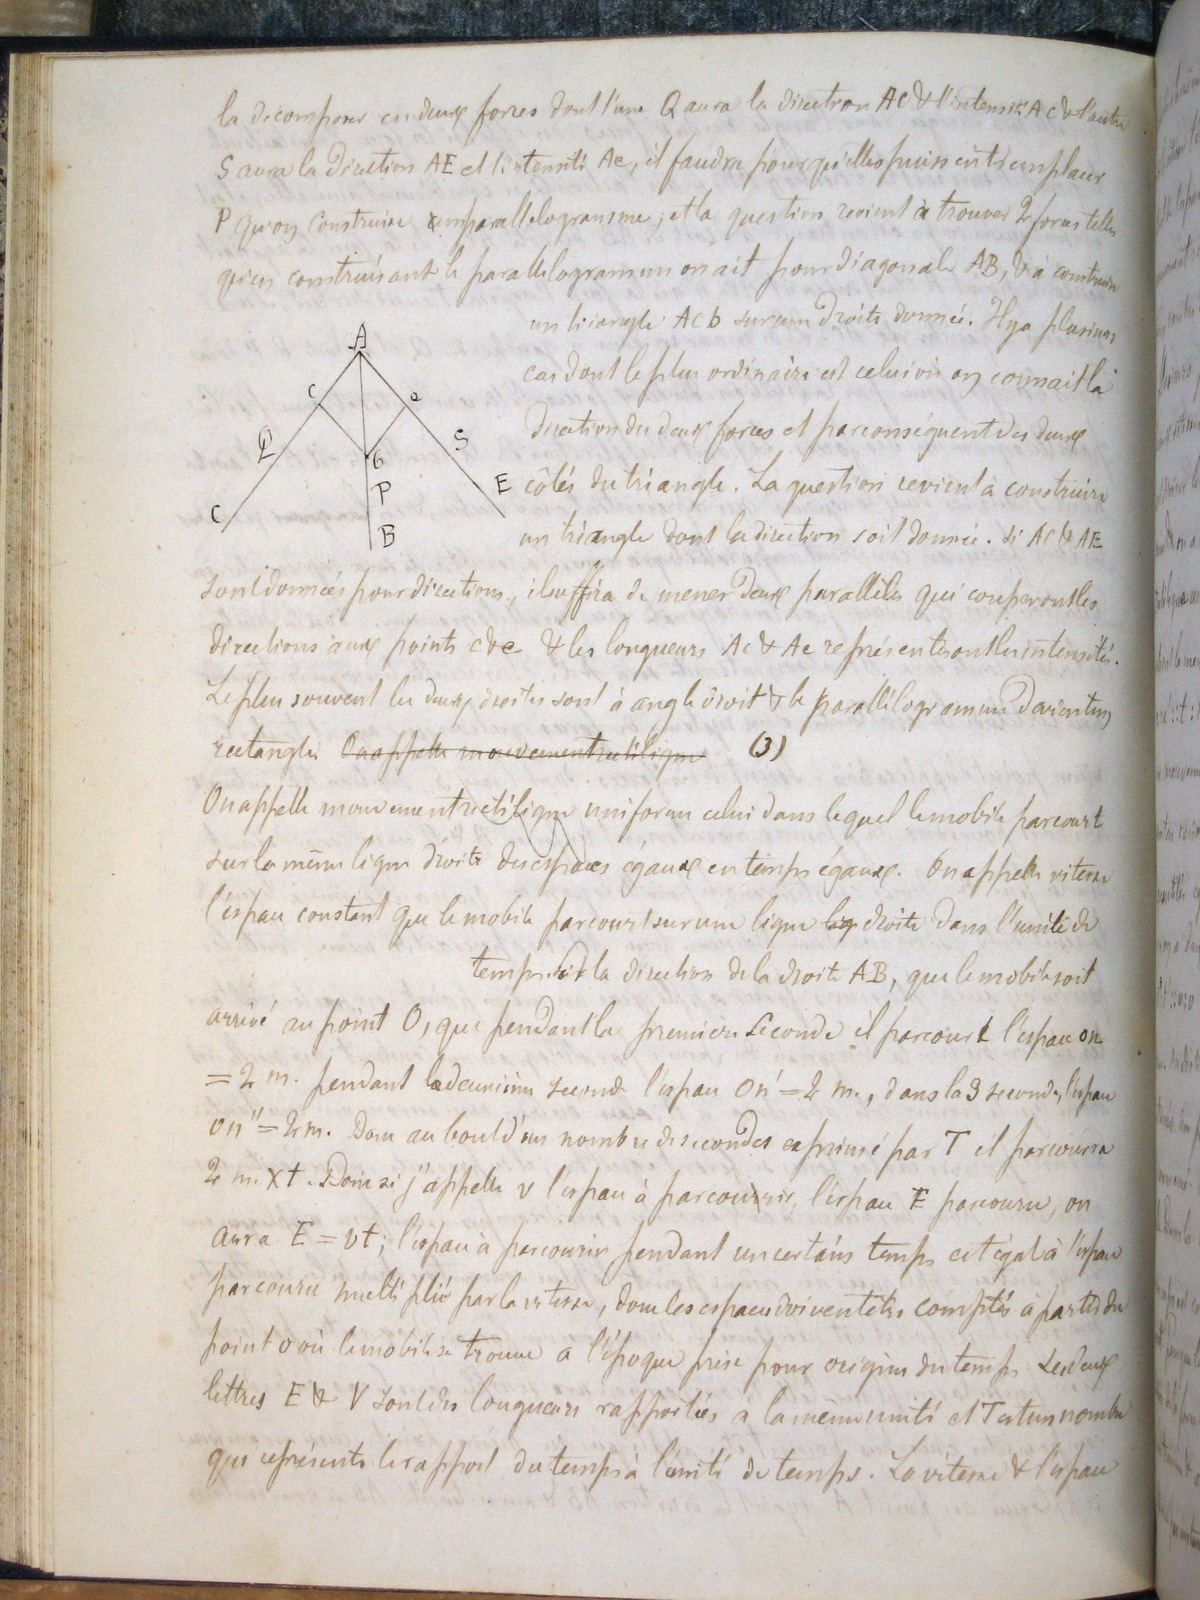 la décomposer en deux forces dont l'une Q aura la direction AC & l'intensité Ac & l'autre
S aura la direction AE et l'intensité Ae, il faudra pour qu'elles puissent remplacer
P qu'on construise un parallelogramme, et la question revient à trouver 2 forces telles
qu'en construisant le parallelogramme on ait pour diagonale AB, & à construire
un triangle Acb sur une droite donnée. Il y a plusieurs
cas dont le plus ordinaire est celui où on connait la
direction des deux forces et par conséquent des deux
côtés du triangle. La question revient à construire
un triangle dont la direction soit donnée. Si AC & AE
A
c
e
Q
S
b
P
C
E
B
sont données pour directions, il suffira de mener deux parallèles qui couperont les
directions aux points c & e & les longueurs Ac & Ae représenteront les intensités.
Le plus souvent les deux droites sont à angle droit & le parallélogramme devient un
rectangle. On appelle mouvement rectiligne (3)
On appelle mouvement rectiligne uniforme celui dans lequel le mobile parcourt
sur la même ligne droite des espaces égaux en temps égaux. On appelle vitesse
l'espace constant que le mobile parcourt sur une ligne lig droite dans l'unité de
temps. Soit la direction de la droite AB, que le mobile soit
arrivé au point O, que pendant la première seconde il parcourt l'espace on
= 2 m. pendant la deuxième seconde l'espace on' = 2 m., dans la 3 seconde, l'espace
on'' = 2 m. Donc au bout d'un nombre de secondes exprimé par T il parcourra
2 m. x t. Donc si j'appelle v l'espace à parcourir, l'espace E parcouru, on
aura E = vt; l'espace à parcourir pendant un certains temps est égal à l'espace
parcouru multiplié par la vitesse, donc les espaces doivent êtres comptés à partir du
point o où le mobile se trouve à l'époque prise pour origine du temps Les deux
lettres E & V sont des longueurs rapportées à la même unité et T est un nombre
qui représente le rapport du temps à l'unité de temps. La vitesse & l'espace